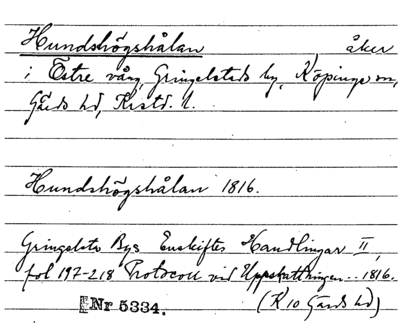 Hundshögshålan åker
i Östre vång, Gringelstads by, Köpinge sn,
Gärds hd, Krstd. l.
Hundshögshålan 1816.
Gringelsta Bys Enskiftes Handlingar II,
fol 197-218 Protocoll vid Uppskattningen... 1816.
Nr 5334. (K 10 Gärds hd)